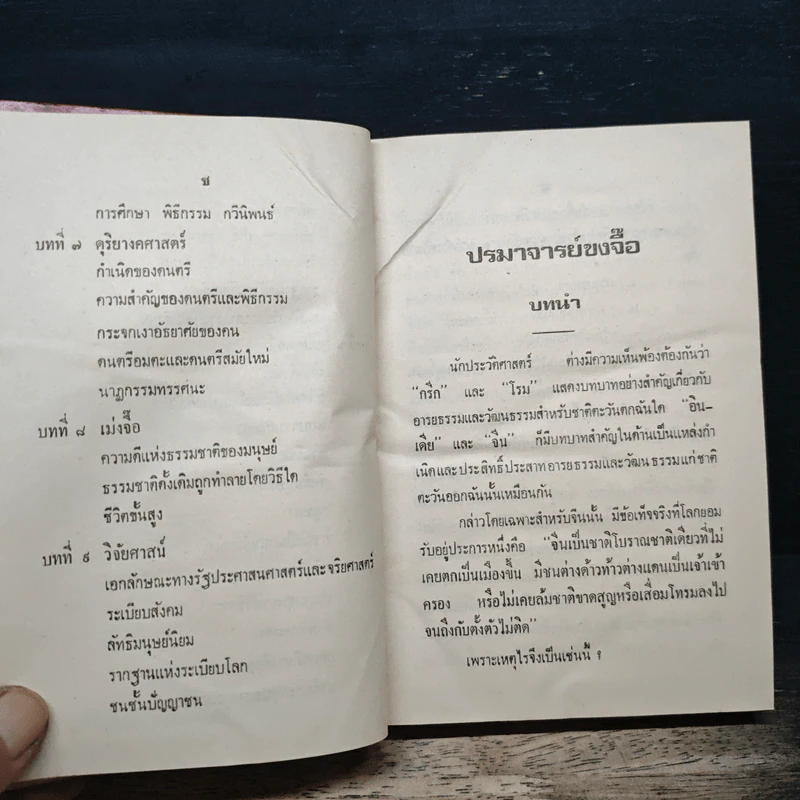 ช
การศึกษา พิธีกรรม กวีนิพนธ์
บทที่ ๗ ดุริยางคศาสตร์
กำเนิดของดนตรี
ความสำคัญของดนตรีและพิธีกรรม
กระจกเงาอัธยาศัยของคน
ดนตรีอมตะและดนตรีสมัยใหม่
นาฏกรรมทรรศนะ
บทที่ ๘ เม่งจื๊อ
ความดีแห่งธรรมชาติของมนุษย์
ธรรมชาติดั้งเดิมถูกทำลายโดยวิธีใด
ชีวิตขั้นสูง
บทที่ ๙ วิจัยศาสน์
เอกลักษณะทางรัฐประศาสนศาสตร์และจริยศาสตร์
ระเบียบสังคม
ลัทธิมนุษย์นิยม
รากฐานแห่งระเบียบโลก
ชนชั้นปัญญาชน
ปรมาจารย์ขงจื๊อ
บทนำ
นักประวัติศาสตร์ ต่างมีความเห็นพ้องต้องกันว่า
“กรีก” และ “โรม” แสดงบทบาทอย่างสำคัญเกี่ยวกับ
อารยธรรมและวัฒนธรรมสำหรับชาติตะวันตกฉันใด “อิน–
เดีย” และ “จีน” ก็มีบทบาทสำคัญในด้านเป็นแหล่งกำ
เนิดและประสิทธิ์ประสาทอารยธรรมและวัฒนธรรมแก่ชาติ
ตะวันออกฉันนั้นเหมือนกัน
กล่าวโดยเฉพาะสำหรับจีนนั้น มีข้อเท็จจริงที่โลกยอม
รับอยู่ประการหนึ่งคือ “จีนเป็นชาติโบราณชาติเดียวที่ไม่
เคยตกเป็นเมืองขึ้น มีชนต่างด้าวท้าวต่างแดนเป็นเจ้าเข้า
ครอง หรือไม่เคยล้มชาติขาดสูญหรือเสื่อมโทรมลงไป
จนถึงกับตั้งตัวไม่ติด”
เพราะเหตุไรจึงเป็นเช่นนี้ ?